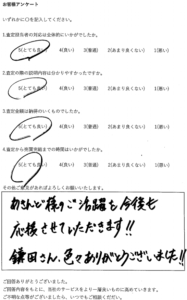 お客様アンケート
いずれかに○を記入してください。
1.査定担当者の対応は全体的にいかがでしたか。
5(とても良い) 4(良い) 3(普通) 2(あまり良くない) 1(悪い)
2.査定の際の説明内容は分かりやすかったですか。
5(とても良い) 4(良い) 3(普通) 2(あまり良くない) 1(悪い)
3.査定金額は納得のいくものでしたか。
5(とても良い) 4(良い) 3(普通) 2(あまり良くない) 1(悪い)
4.査定から
5(とても良い) 4(良い) 3(普通) 2(あまり良くない) 1(悪い)
その他ご意見があればよろしくお願いいたします。
様のご活躍も今後も
応援させていただきます!!
鎌田さん、色々ありがとうございました!!
ご回答ありがとうございました。
ご回答内容をもとに、当社のサービスをより一層良いものに高めていきます。
ご不明な点等がございましたら、いつでもご相談ください。